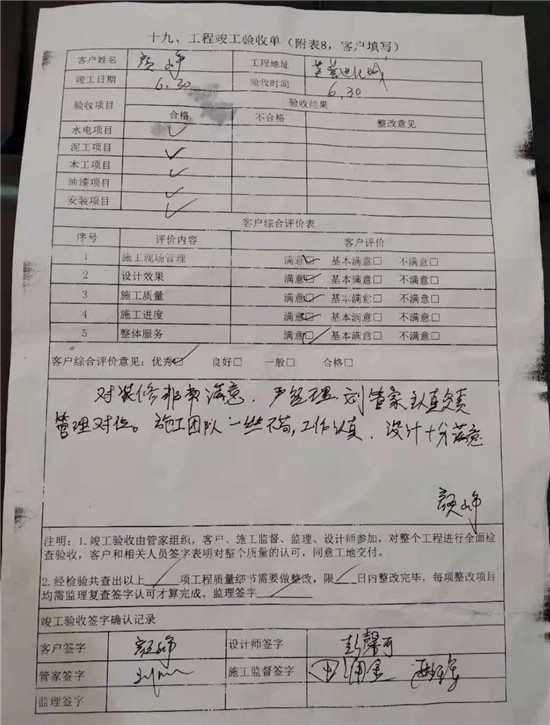 十九、工程竣工验收单（附表8，客户填写）
客户姓名 颜峥 工程地址
竣工日期 6.30 验收时间 6.30
验收项目 验收结果
合格 不合格 整改意见
水电项目 ✓
泥工项目 ✓
木工项目 ✓
油漆项目 ✓
安装项目 ✓
客户综合评价表
序号 评价内容 客户评价
1 施工现场管理 满意☑ 基本满意□ 不满意□
2 设计效果 满意☑ 基本满意□ 不满意□
3 施工质量 满意☑ 基本满意□ 不满意□
4 施工进度 满意☑ 基本满意□ 不满意□
5 整体服务 满意☑ 基本满意□ 不满意□
客户综合评价意见：优秀☑ 良好□ 一般□ 合格□
对装修非常满意，严经理、刘管家认真负责
管理到位。施工团队一丝不苟，工作认真，设计十分满意
颜峥
注明：1.竣工验收由管家组织，客户、施工监督、监理、设计师参加，对整个工程进行全面检
查验收，客户和相关人员签字表明对整个质量的认可，同意工地交付。
2.经检验共查出以上 项工程质量细节需要做整改，限 日内整改完毕，每项整改项目
均需监理复查签字认可才算完成。监理签字
竣工验收签字确认记录
客户签字 颜峥 设计师签字 彭馨可
管家签字 施工监督签字
监理签字